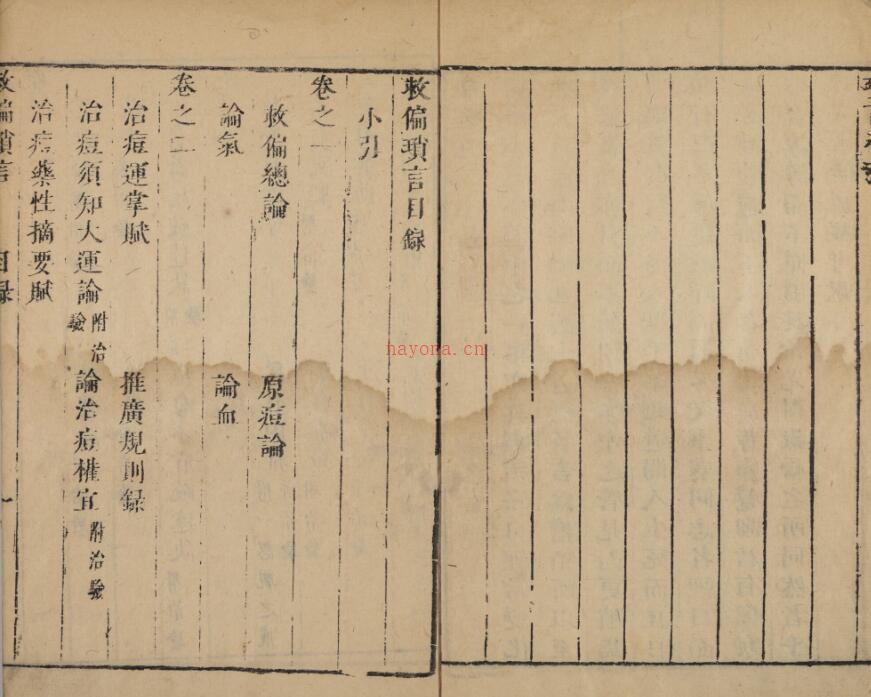 救偏瑣言目錄
小引
卷之一
救偏總論 原痘論
論氣 論血
卷之二
治痘運掌賦 推廣規則錄
治痘須知大運論 附治驗 論治痘權宜 附治驗
治痘藥性摘要賦
救偏瑣言 目錄 一
hayora.cn